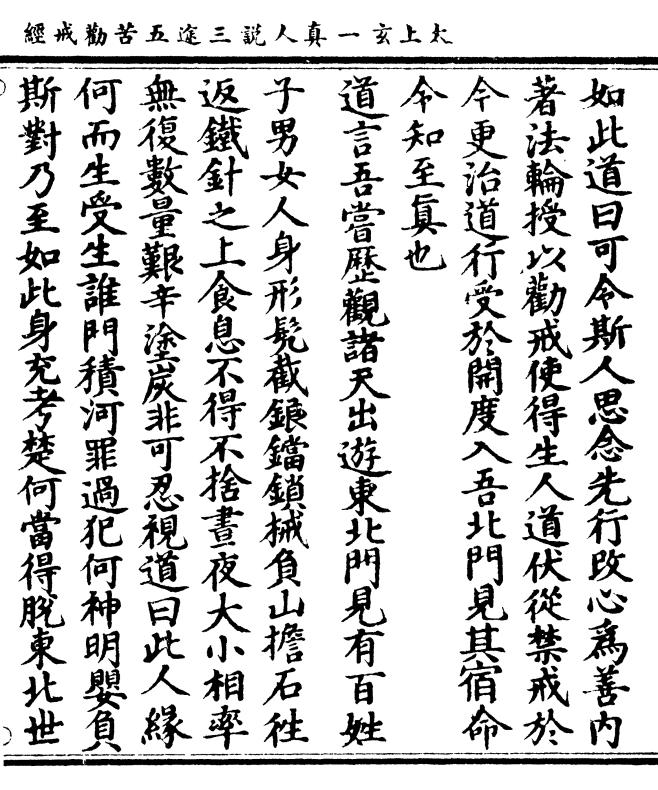 太上玄一真人説三途五苦勸戒經
如此道曰可令斯人思念先行改心爲善内
著法輪授以勸戒使得生人道伏從禁戒於
今更治道行受於開度入吾北門見其宿命
令知至真也
道言吾嘗歷觀諸天出遊東北門見有百姓
子男女人身形髡截鋃鐺鎖械負山擔石往
返鐵針之上食息不得不捨晝夜大小相率
無復數量艱辛塗炭非可忍視道曰此人緣
何而生受生誰門積河罪過犯何神明嬰負
斯對乃至如此身充考楚何當得脫東北世